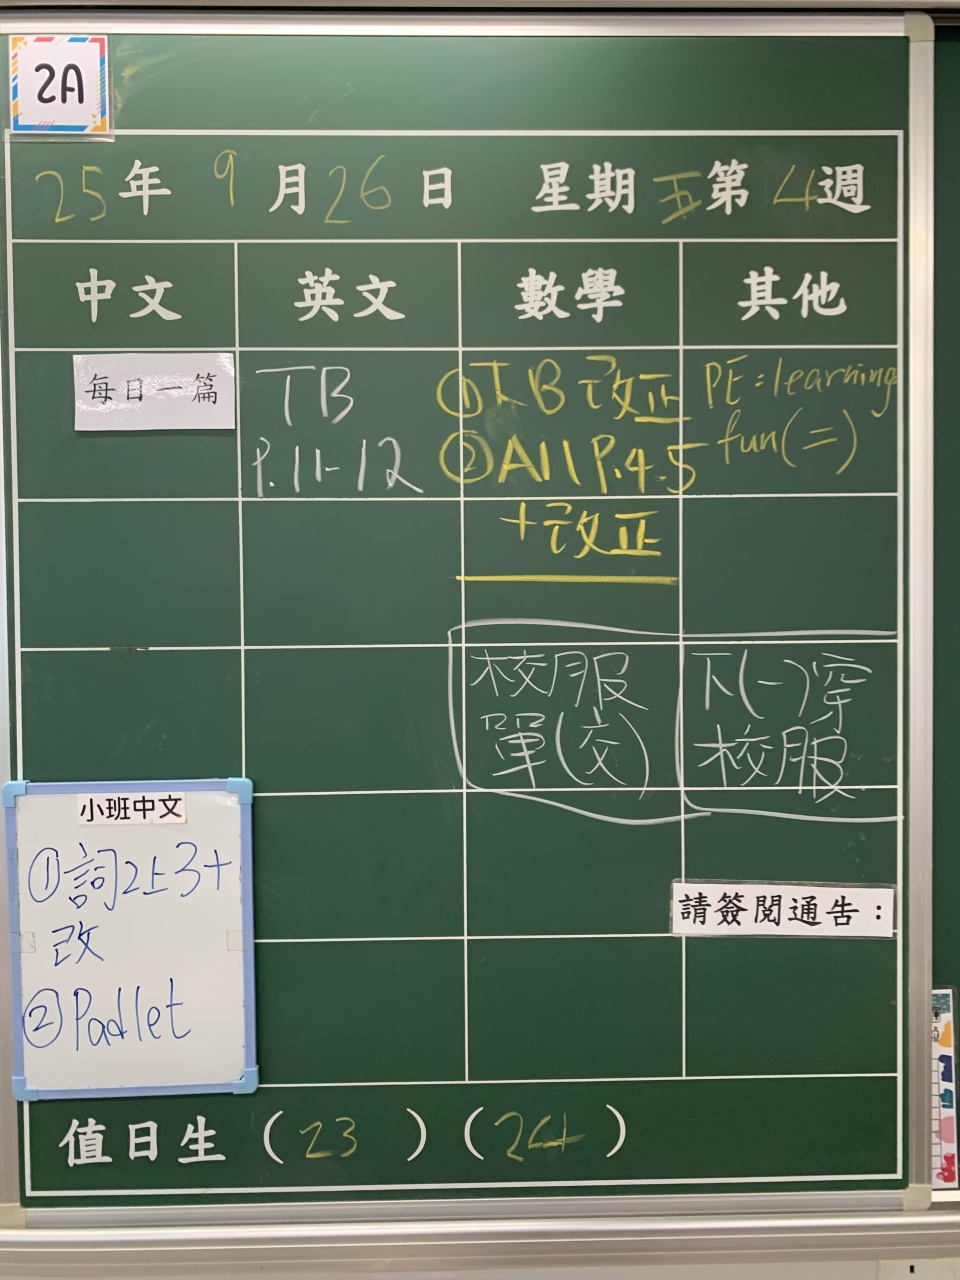 2A
25年 9月26日 星期五第4週
中文 英文 數學 其他
每日一篇
TB
P.11-12
①TB改正
②A11P.4-5
+改正
PE=learning
fun(二)
校服
單(交)
下(一)穿
校服
請簽閱通告：
小班中文
①詞2上3+
改
②Padlet
值日生(23)(24)